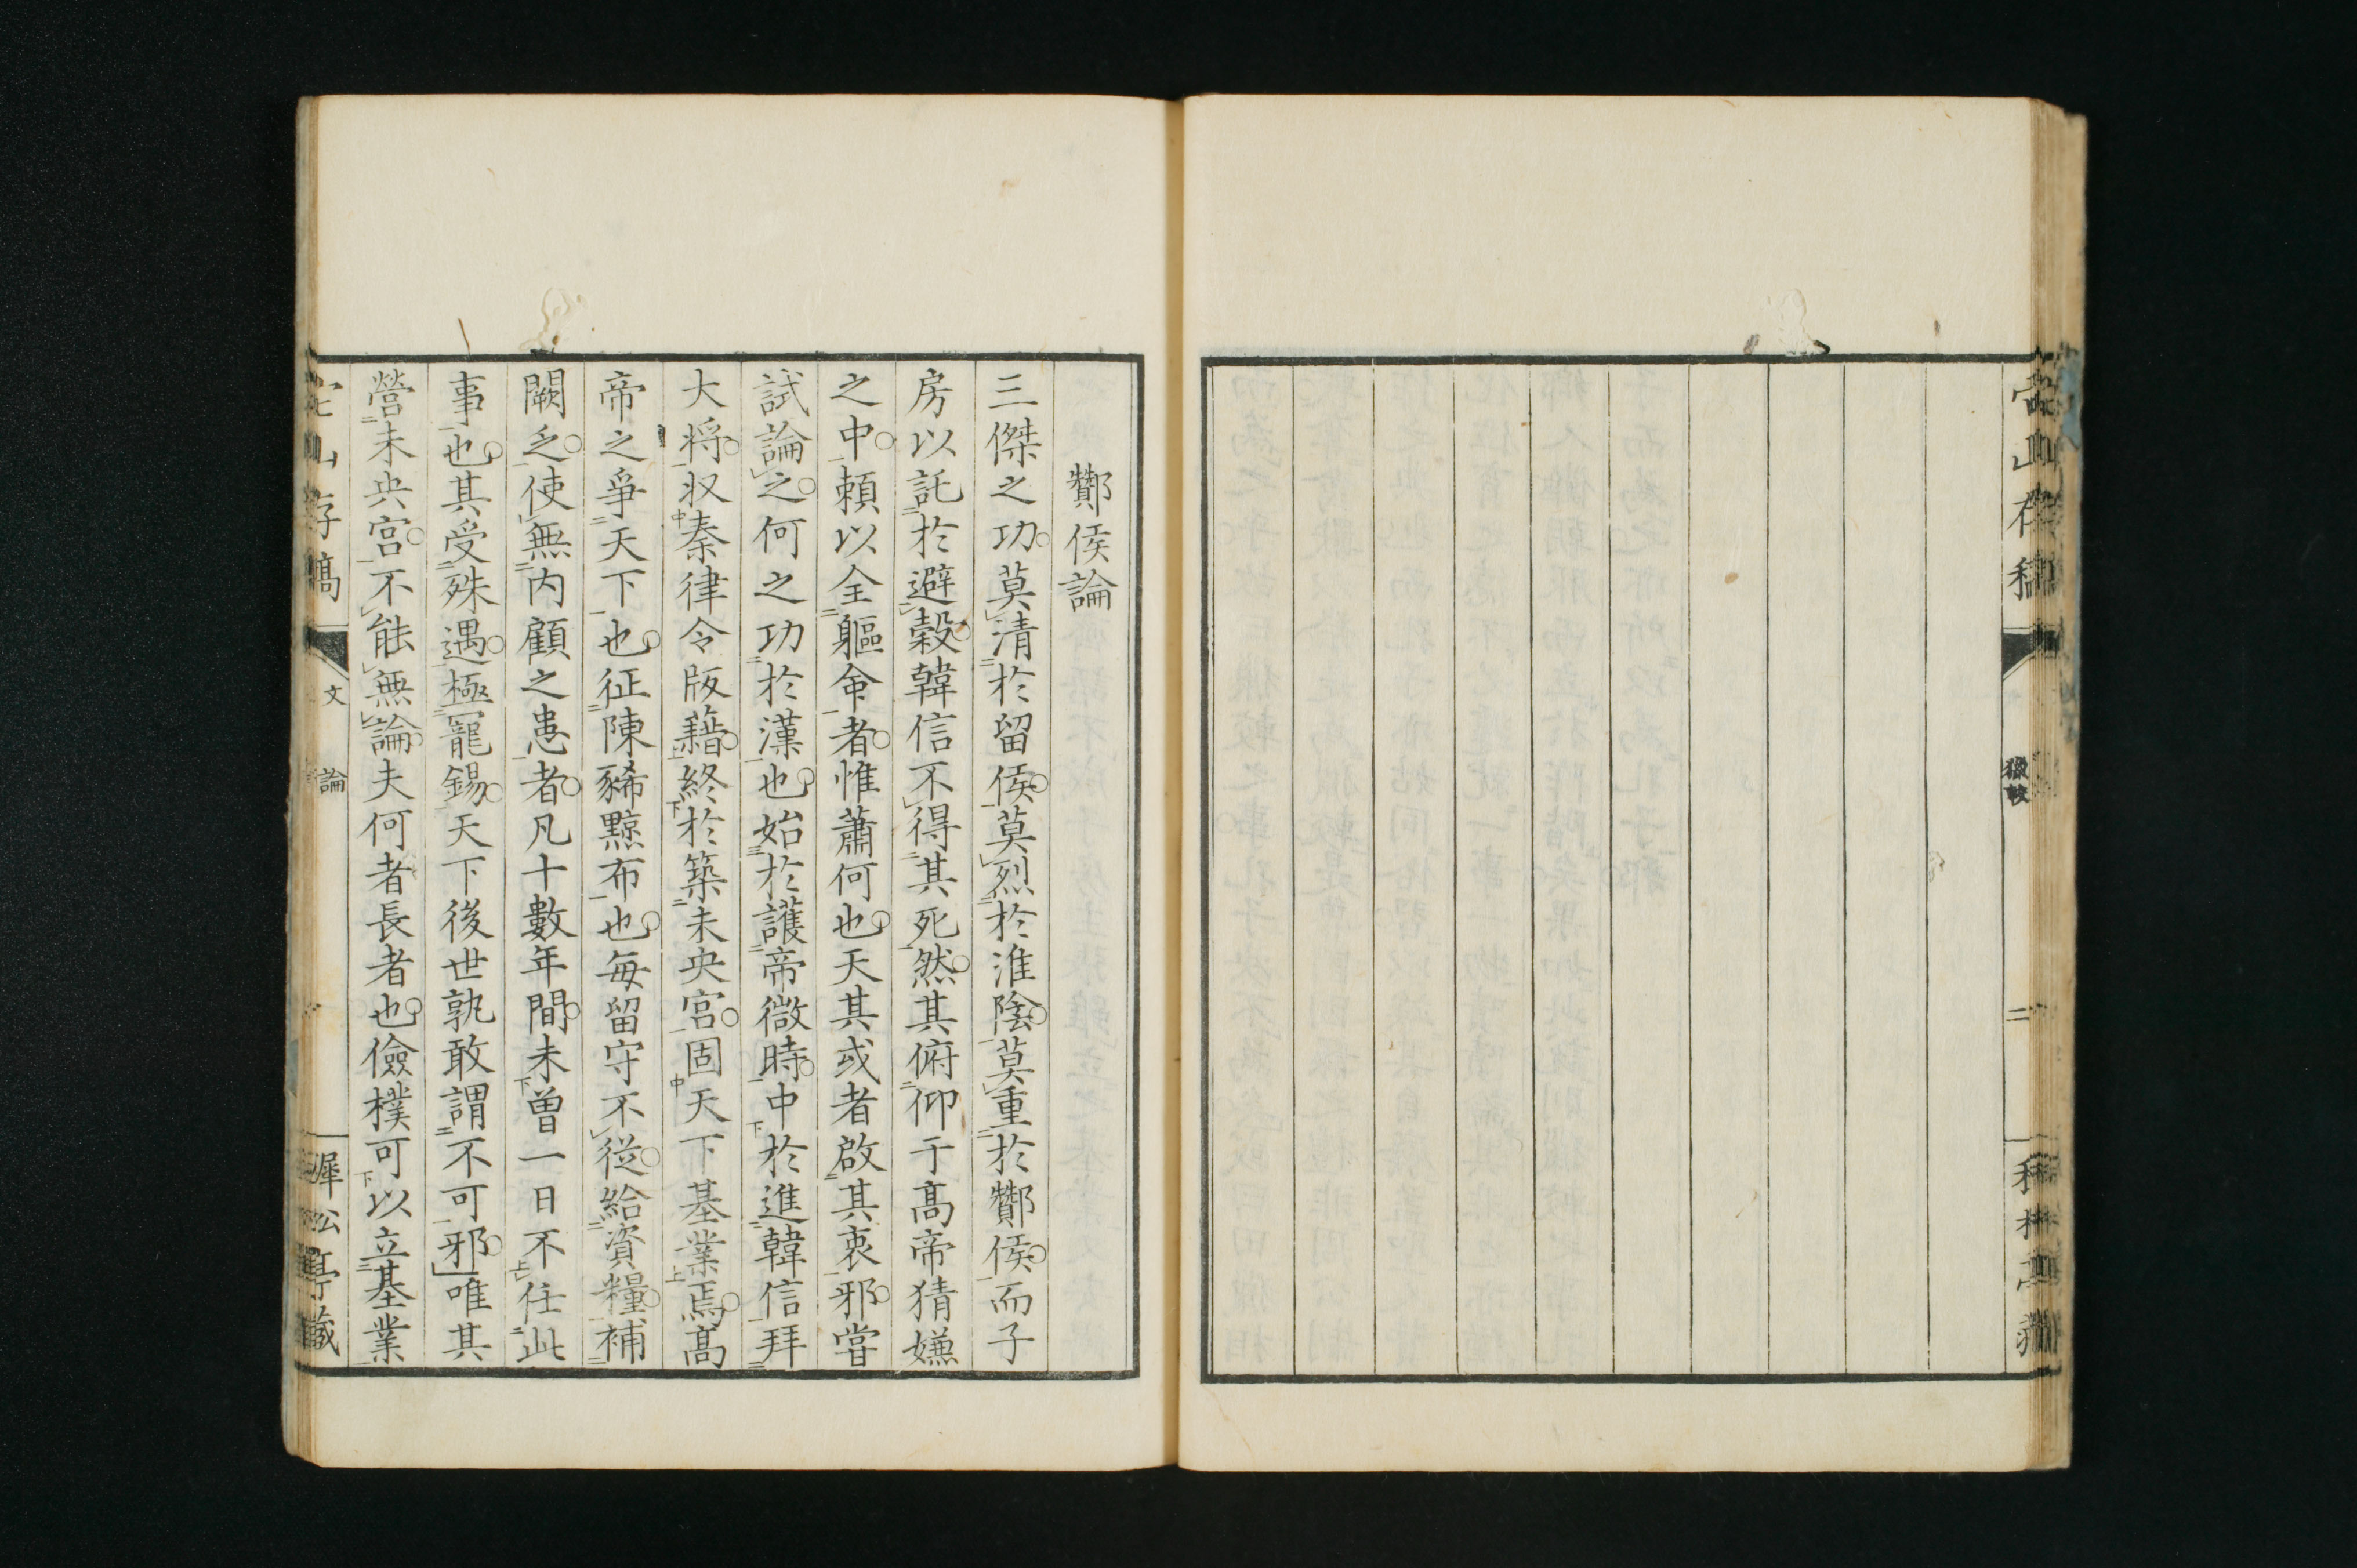 獵較
二
酇侯論
三傑之功莫清於留侯莫烈於淮陰莫重於酇侯而子
房以託於避穀韓信不得其死然其俯仰于高帝猜嫌
之中頼以全軀命者惟蕭何也天其或者啟其衷邪嘗
試論之何之功於漢也始於護帝微時中於進韓信拜
大将収秦律令版藉終於築未央宮固天下基業焉高
帝之爭天下也征陳豨黥布也每留守不従給資糧補
闕乏使無内顧之患者凡十數年間未曽一日不任此
事也其受殊遇極寵錫天下後世孰敢謂不可邪唯其
營未央宮不能無論夫何者長者也儉樸可以立基業
文
論